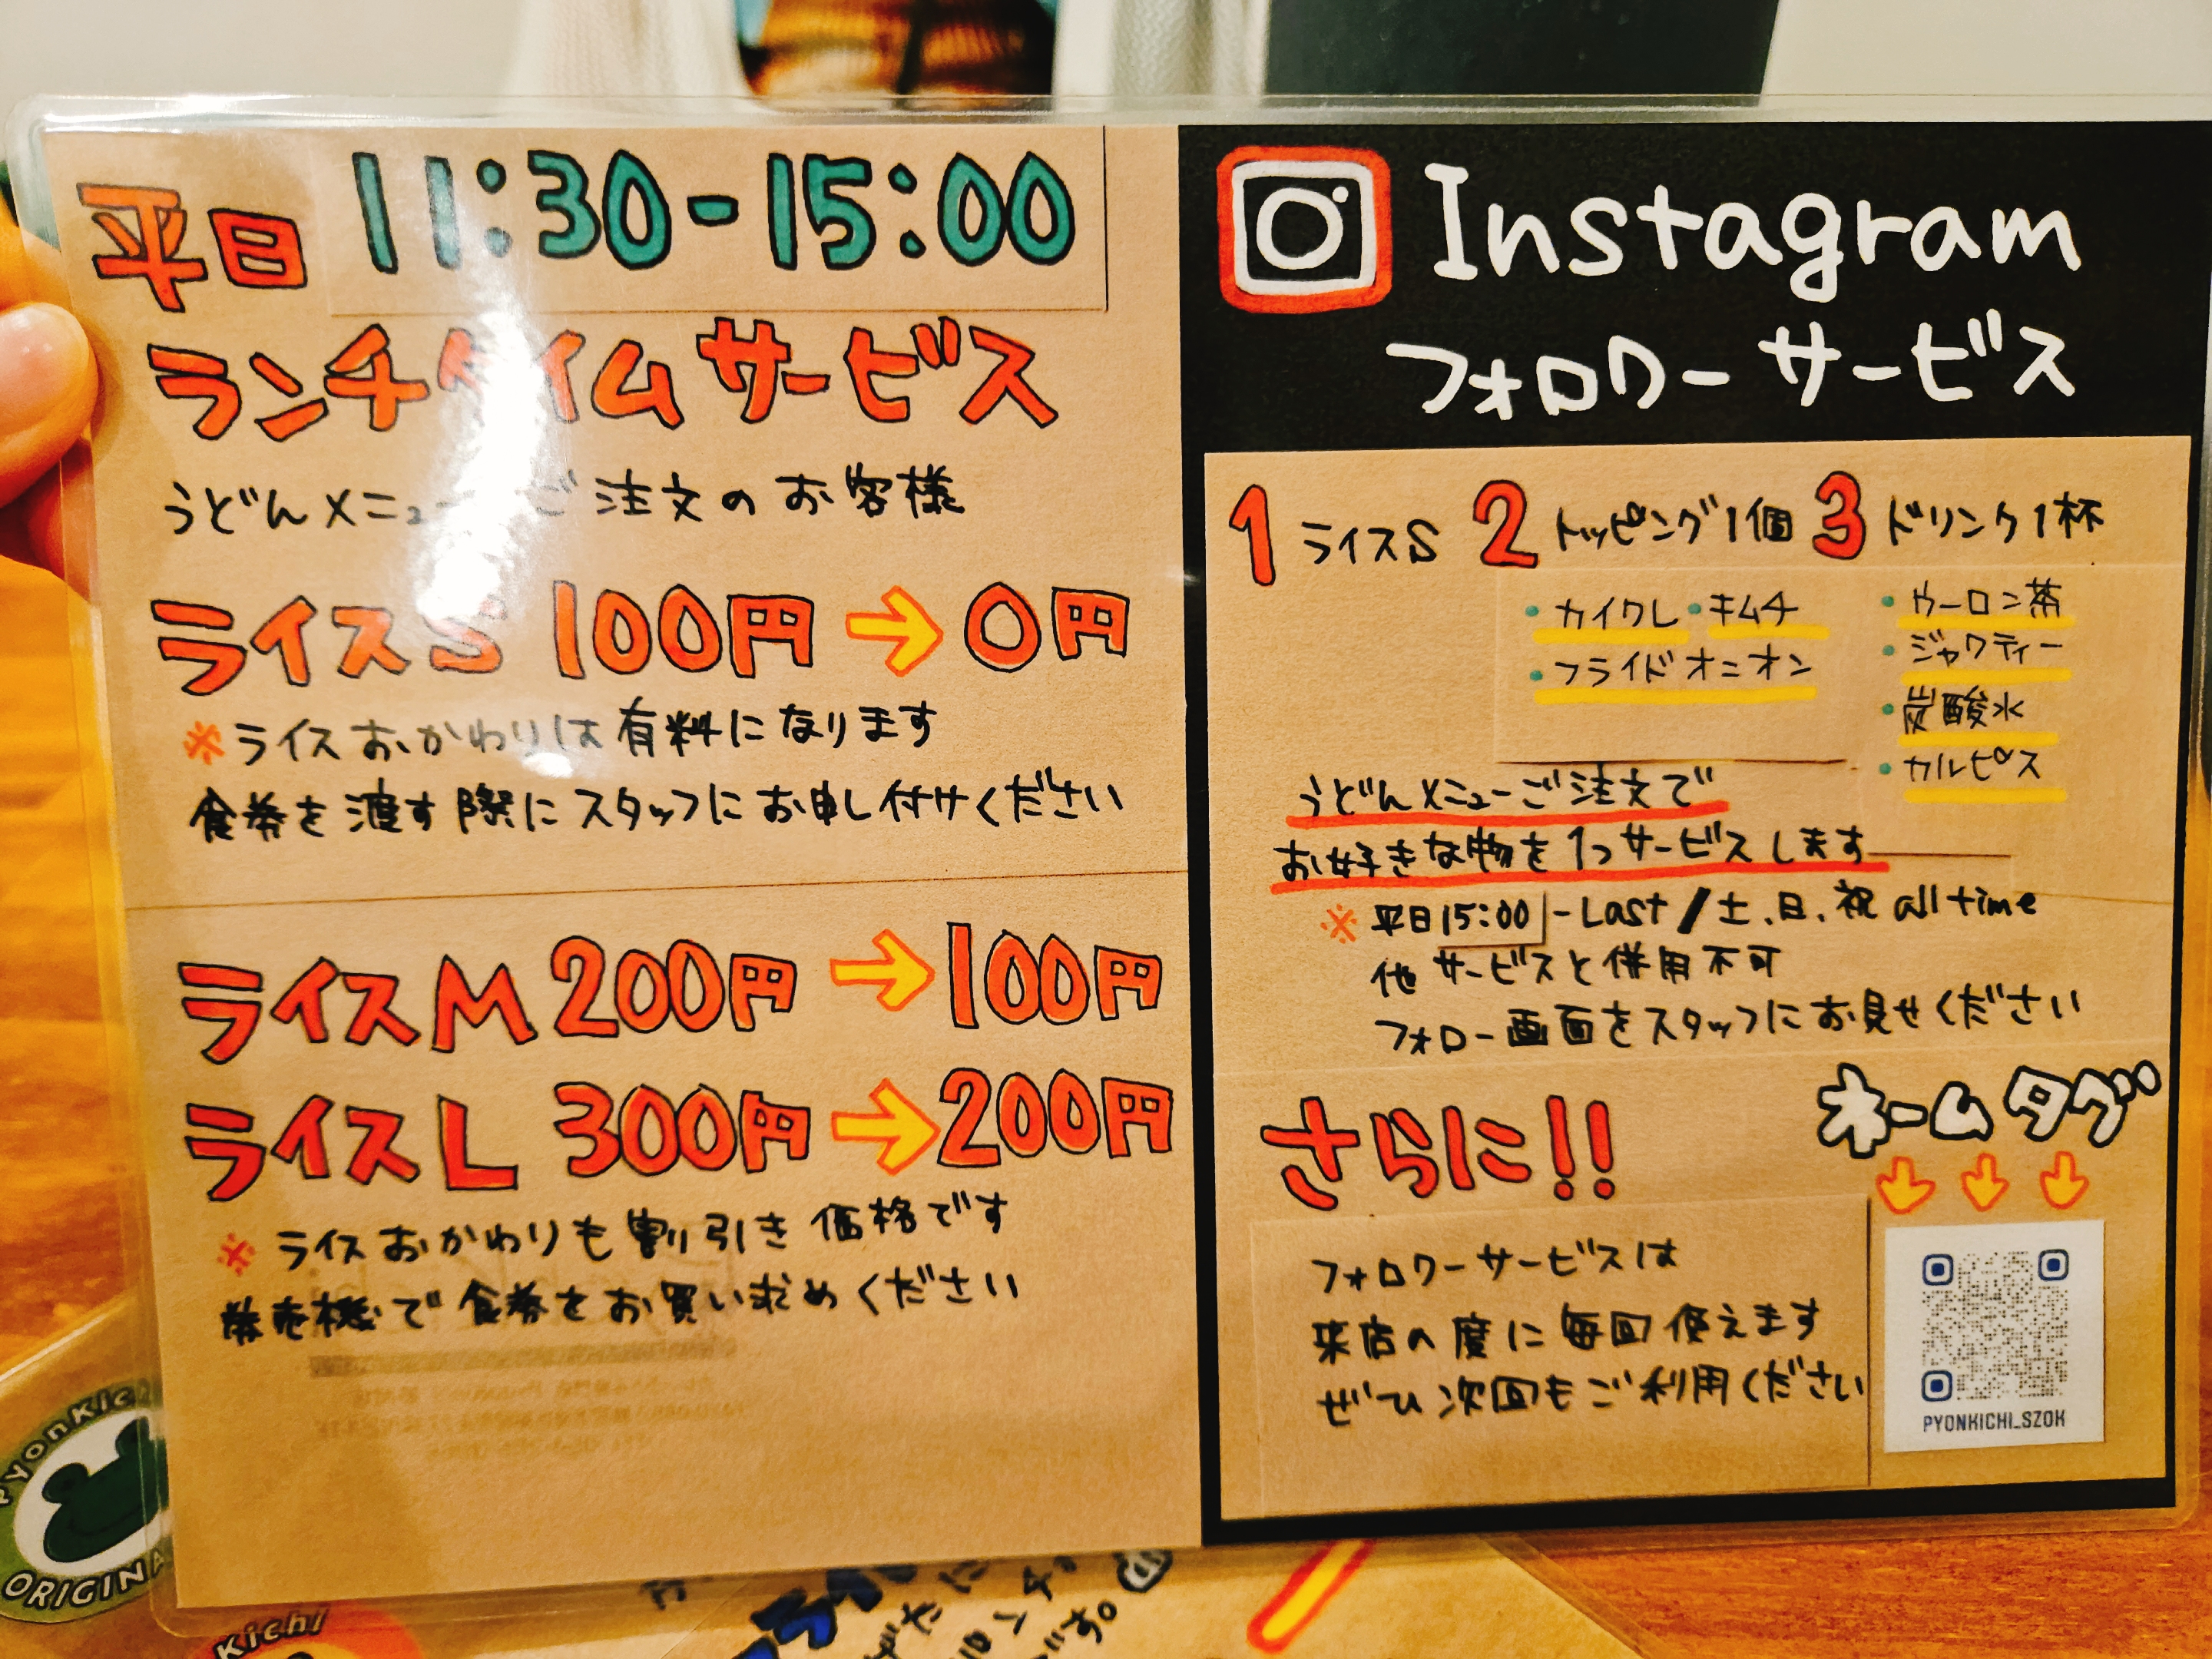 平日 11:30-15:00
ランチタイムサービス
うどんメニューご注文のお客様
ライスS 100円→0円
※ライスおかわりは有料になります
食券を渡す際にスタッフにお申し付けください
ライスM 200円→100円
ライスL 300円→200円
※ライスおかわりも割り引き価格です
券売機で食券をお買い求めください
Instagram
フォロワーサービス
1 ライスS 2 トッピング1個 3 ドリンク1杯
・カイワレ・キムチ
・フライドオニオン
・ウーロン茶
・ジャワティー
・炭酸水
・カルピス
うどんメニューご注文で
お好きな物を1つサービスします
※平日15:00-Last/土、日、祝 all time
他サービスと併用不可
フォロー画面をスタッフにお見せください
さらに!!
フォロワーサービスは
来店の度に毎回使えます
ぜひ次回もご利用ください
ホームタグ
↓↓↓
PYONKICHI_SZOK
PyonKichi
ORIGINA
Kichi